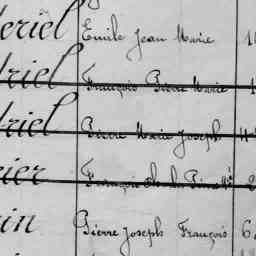 eriel Emile Jean Marie 1
driel François Pierre Marie
driel Pierre Marie Joseph
ier François
in Pierre Joseph François 6